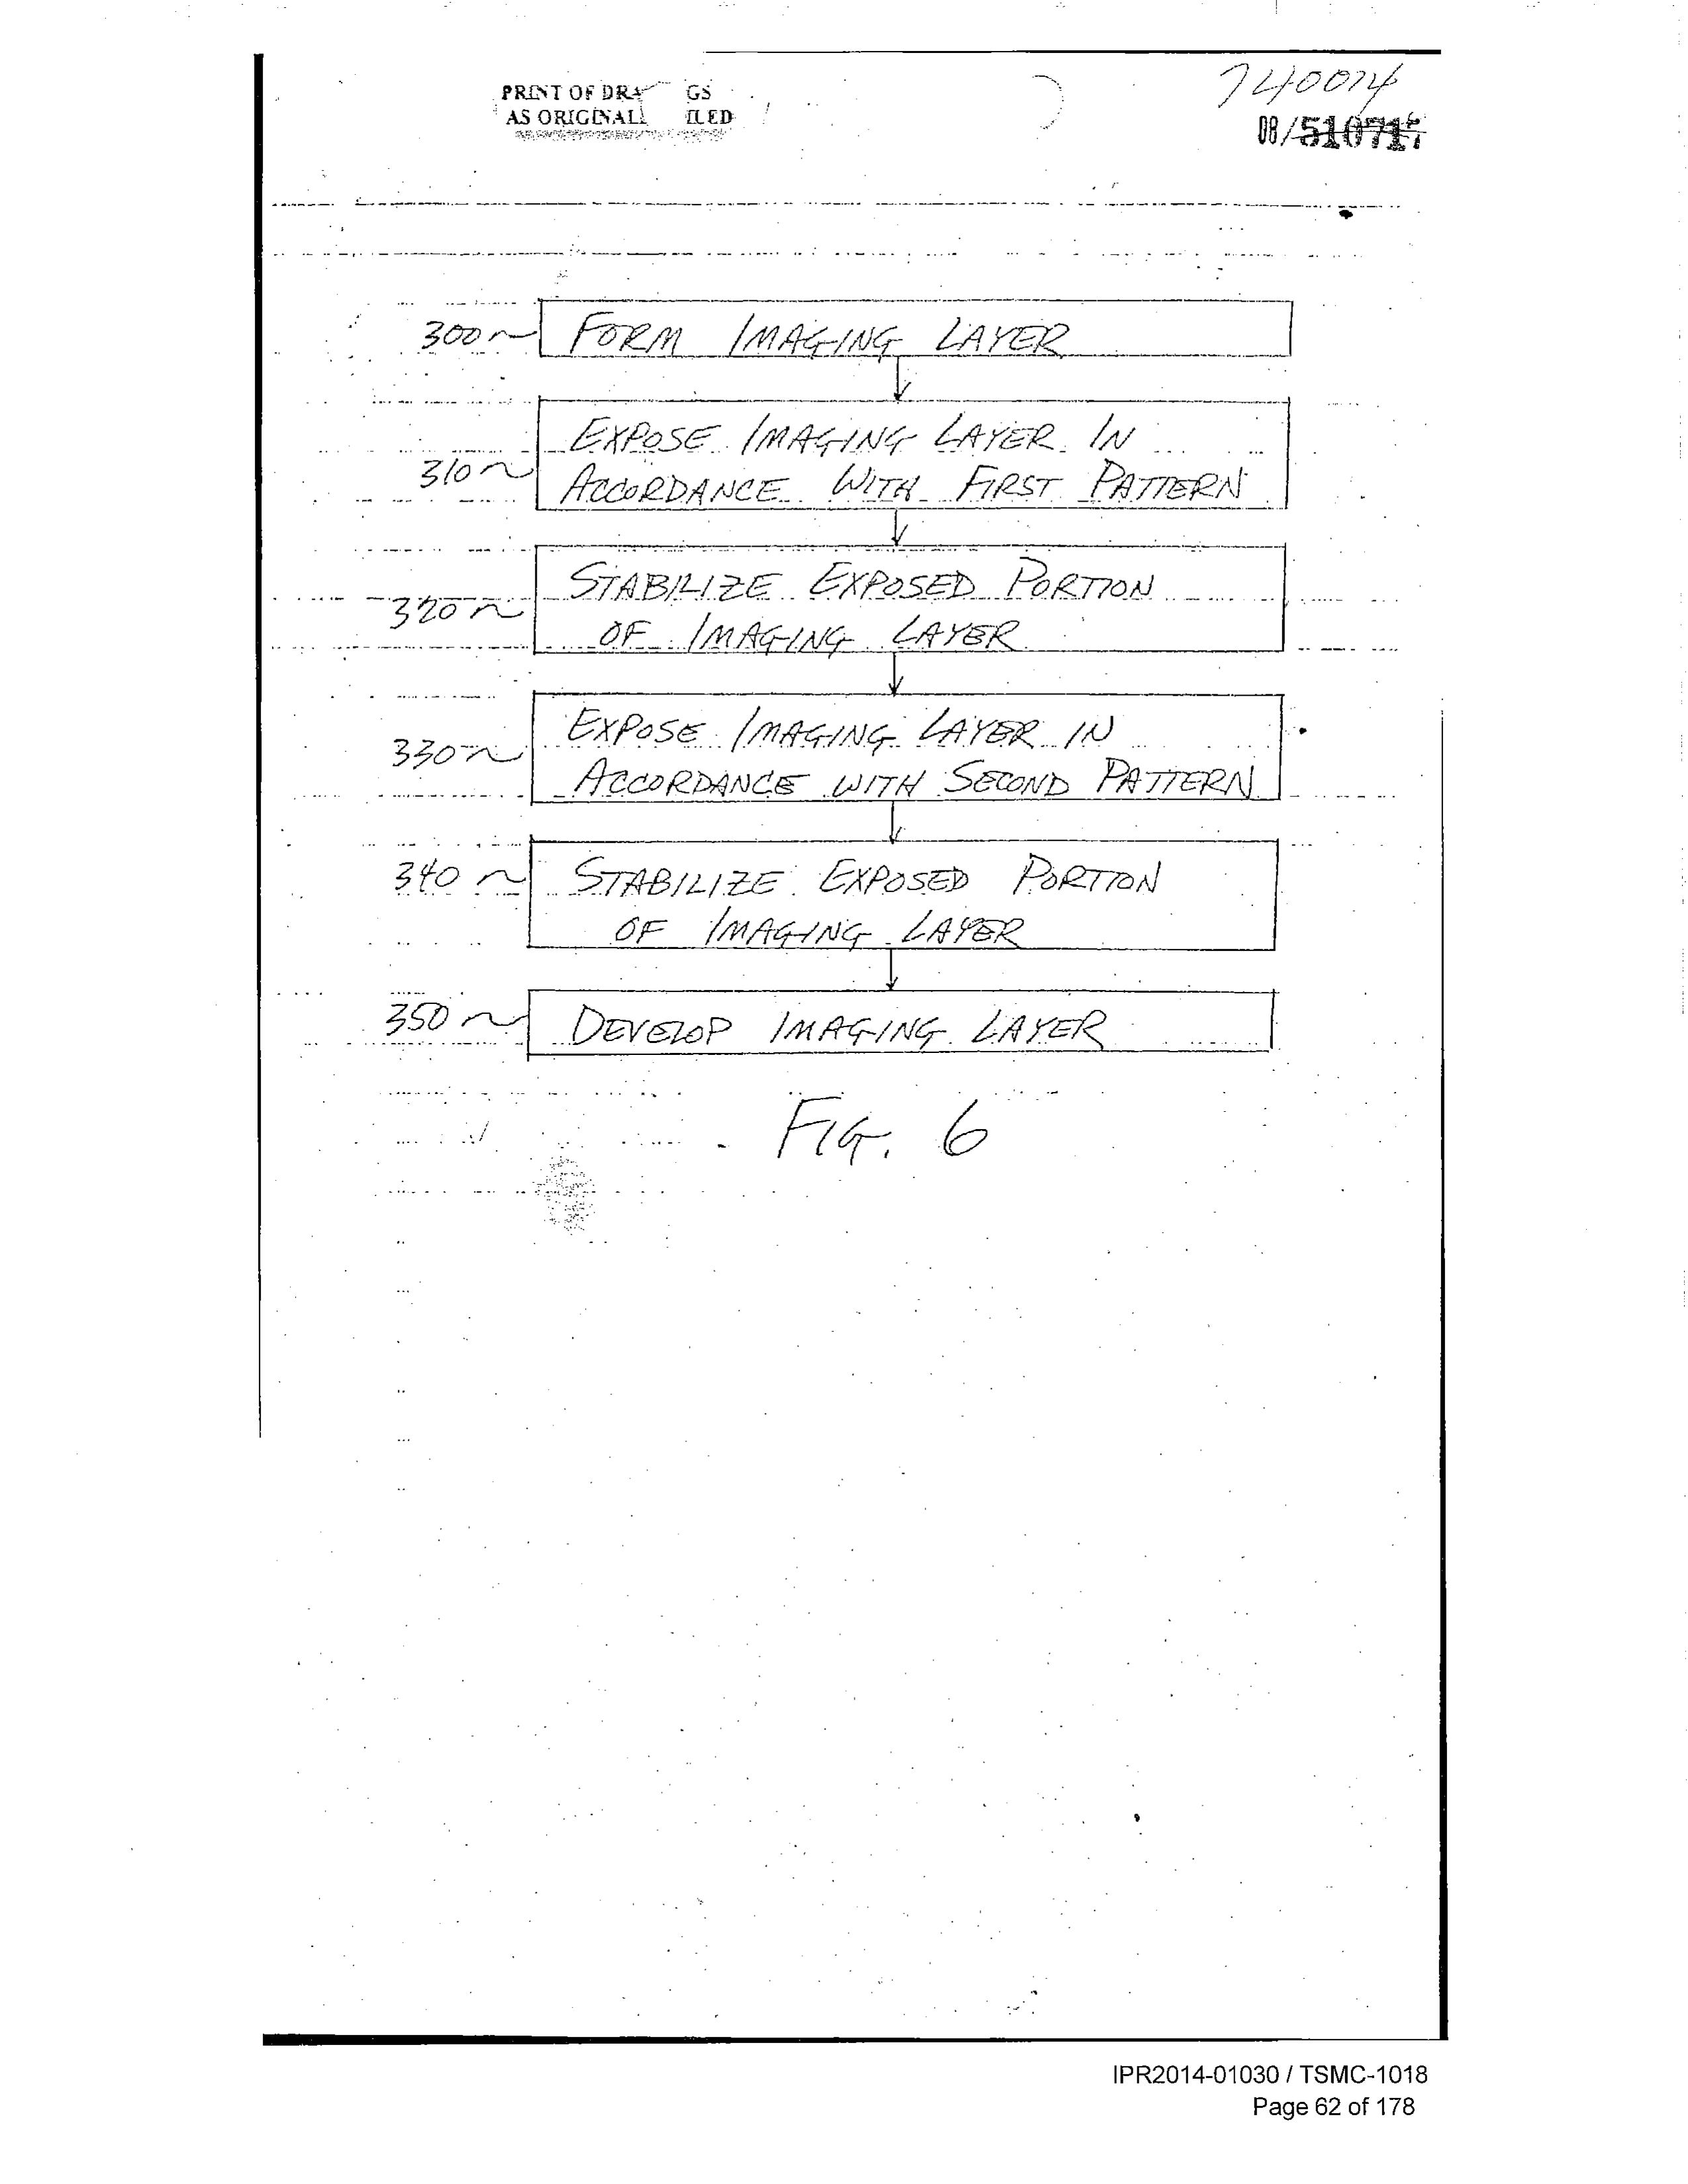 PRINT OF DRA GS
AS ORIGINALL ILED
740074
08/510717
300 FORM IMAGING LAYER
EXPOSE IMAGING LAYER IN
310 ACCORDANCE WITH FIRST PATTERN
STABILIZE EXPOSED PORTION
320 OF IMAGING LAYER
EXPOSE IMAGING LAYER IN
330 ACCORDANCE WITH SECOND PATTERN
340 STABILIZE EXPOSED PORTION
OF IMAGING LAYER
350 DEVELOP IMAGING LAYER
FIG. 6
IPR2014-01030 / TSMC-1018
Page 62 of 178